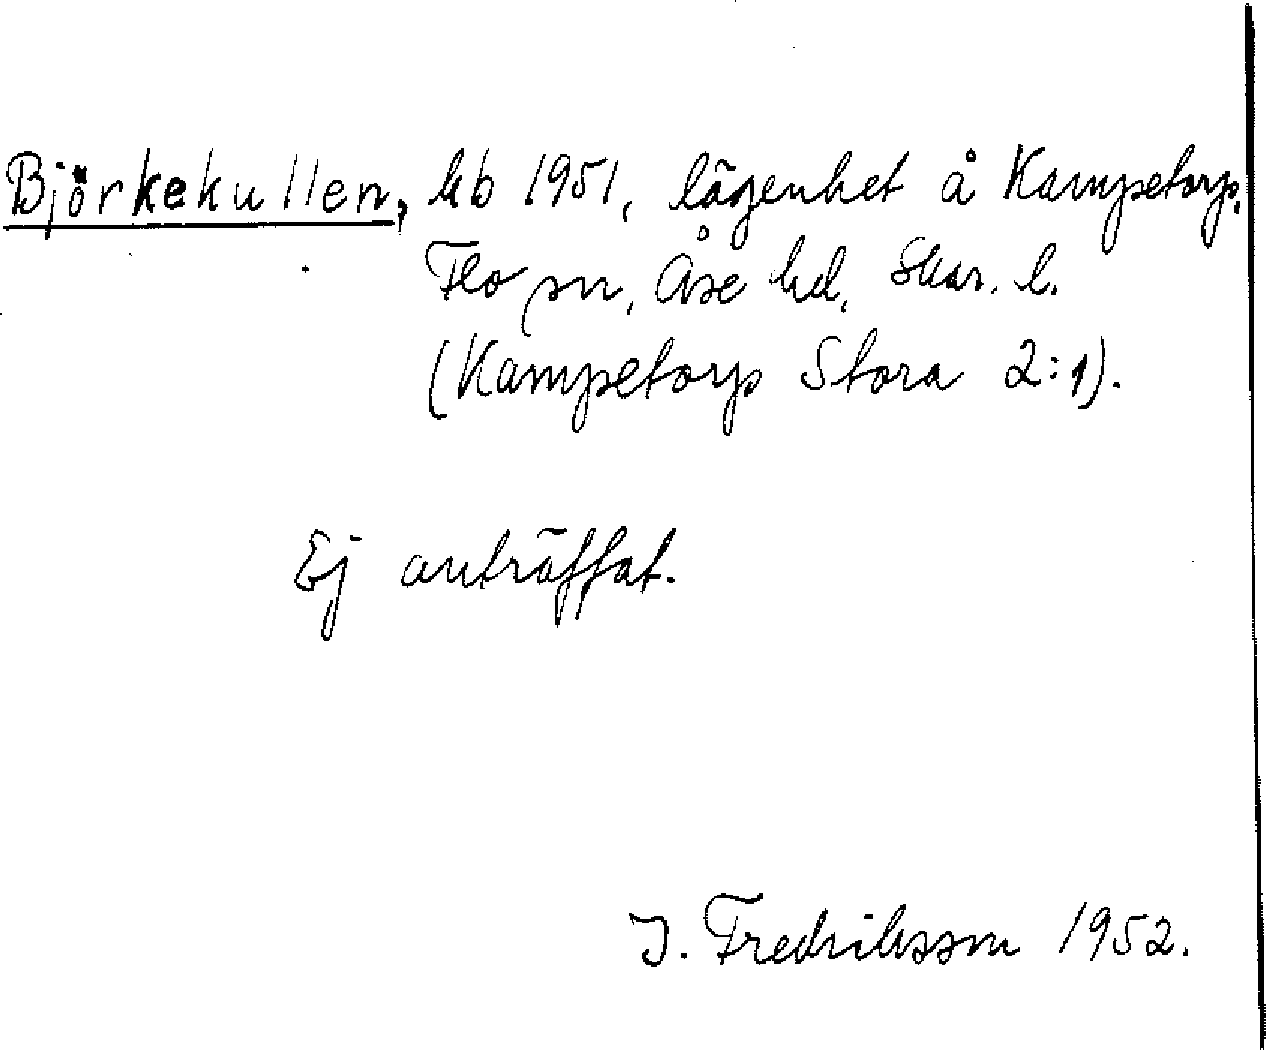 Björkekullen, kb 1951, lägenhet å Kampetorp,
Flo sn, Åse hd, Skar. l.
(Kampetorp Stora 2:1).
Ej anträffat.
I. Fredriksson 1952.